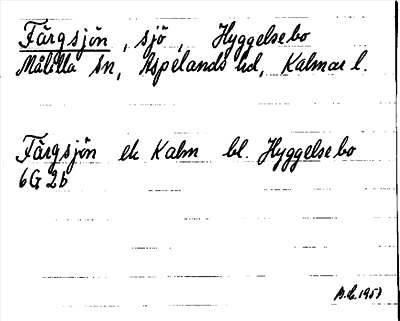 Färgsjön, sjö, Hyggelsebo
Målilla sn, Aspelands hd, Kalmar l.
Färgsjön ek Kalm bl. Hyggelsebo
6G 2b